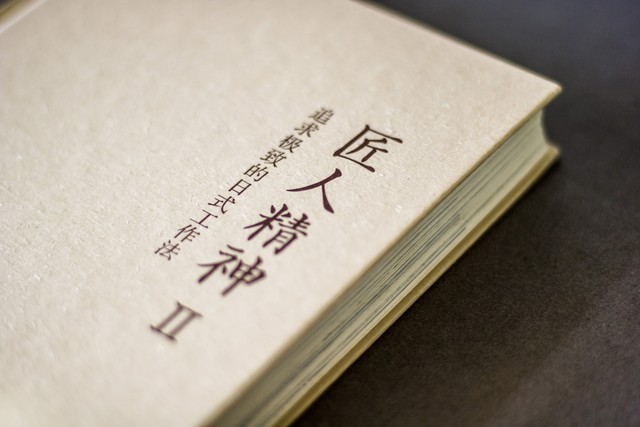 匠人精神 Ⅱ
追求极致的日式工作法